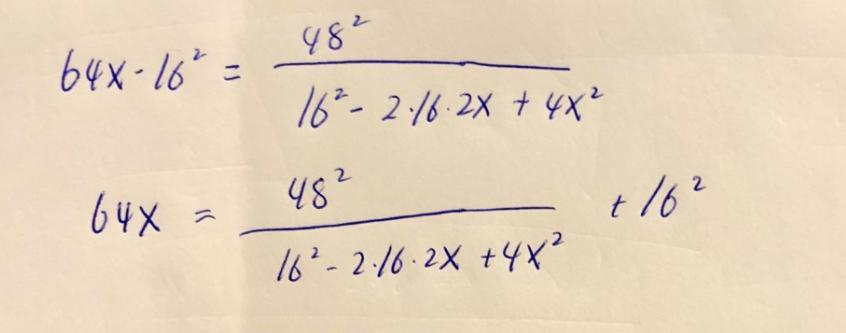 64x - 16² = 48² / (16² - 2·16·2x + 4x²)
64x = 48² / (16² - 2·16·2x + 4x²) + 16²